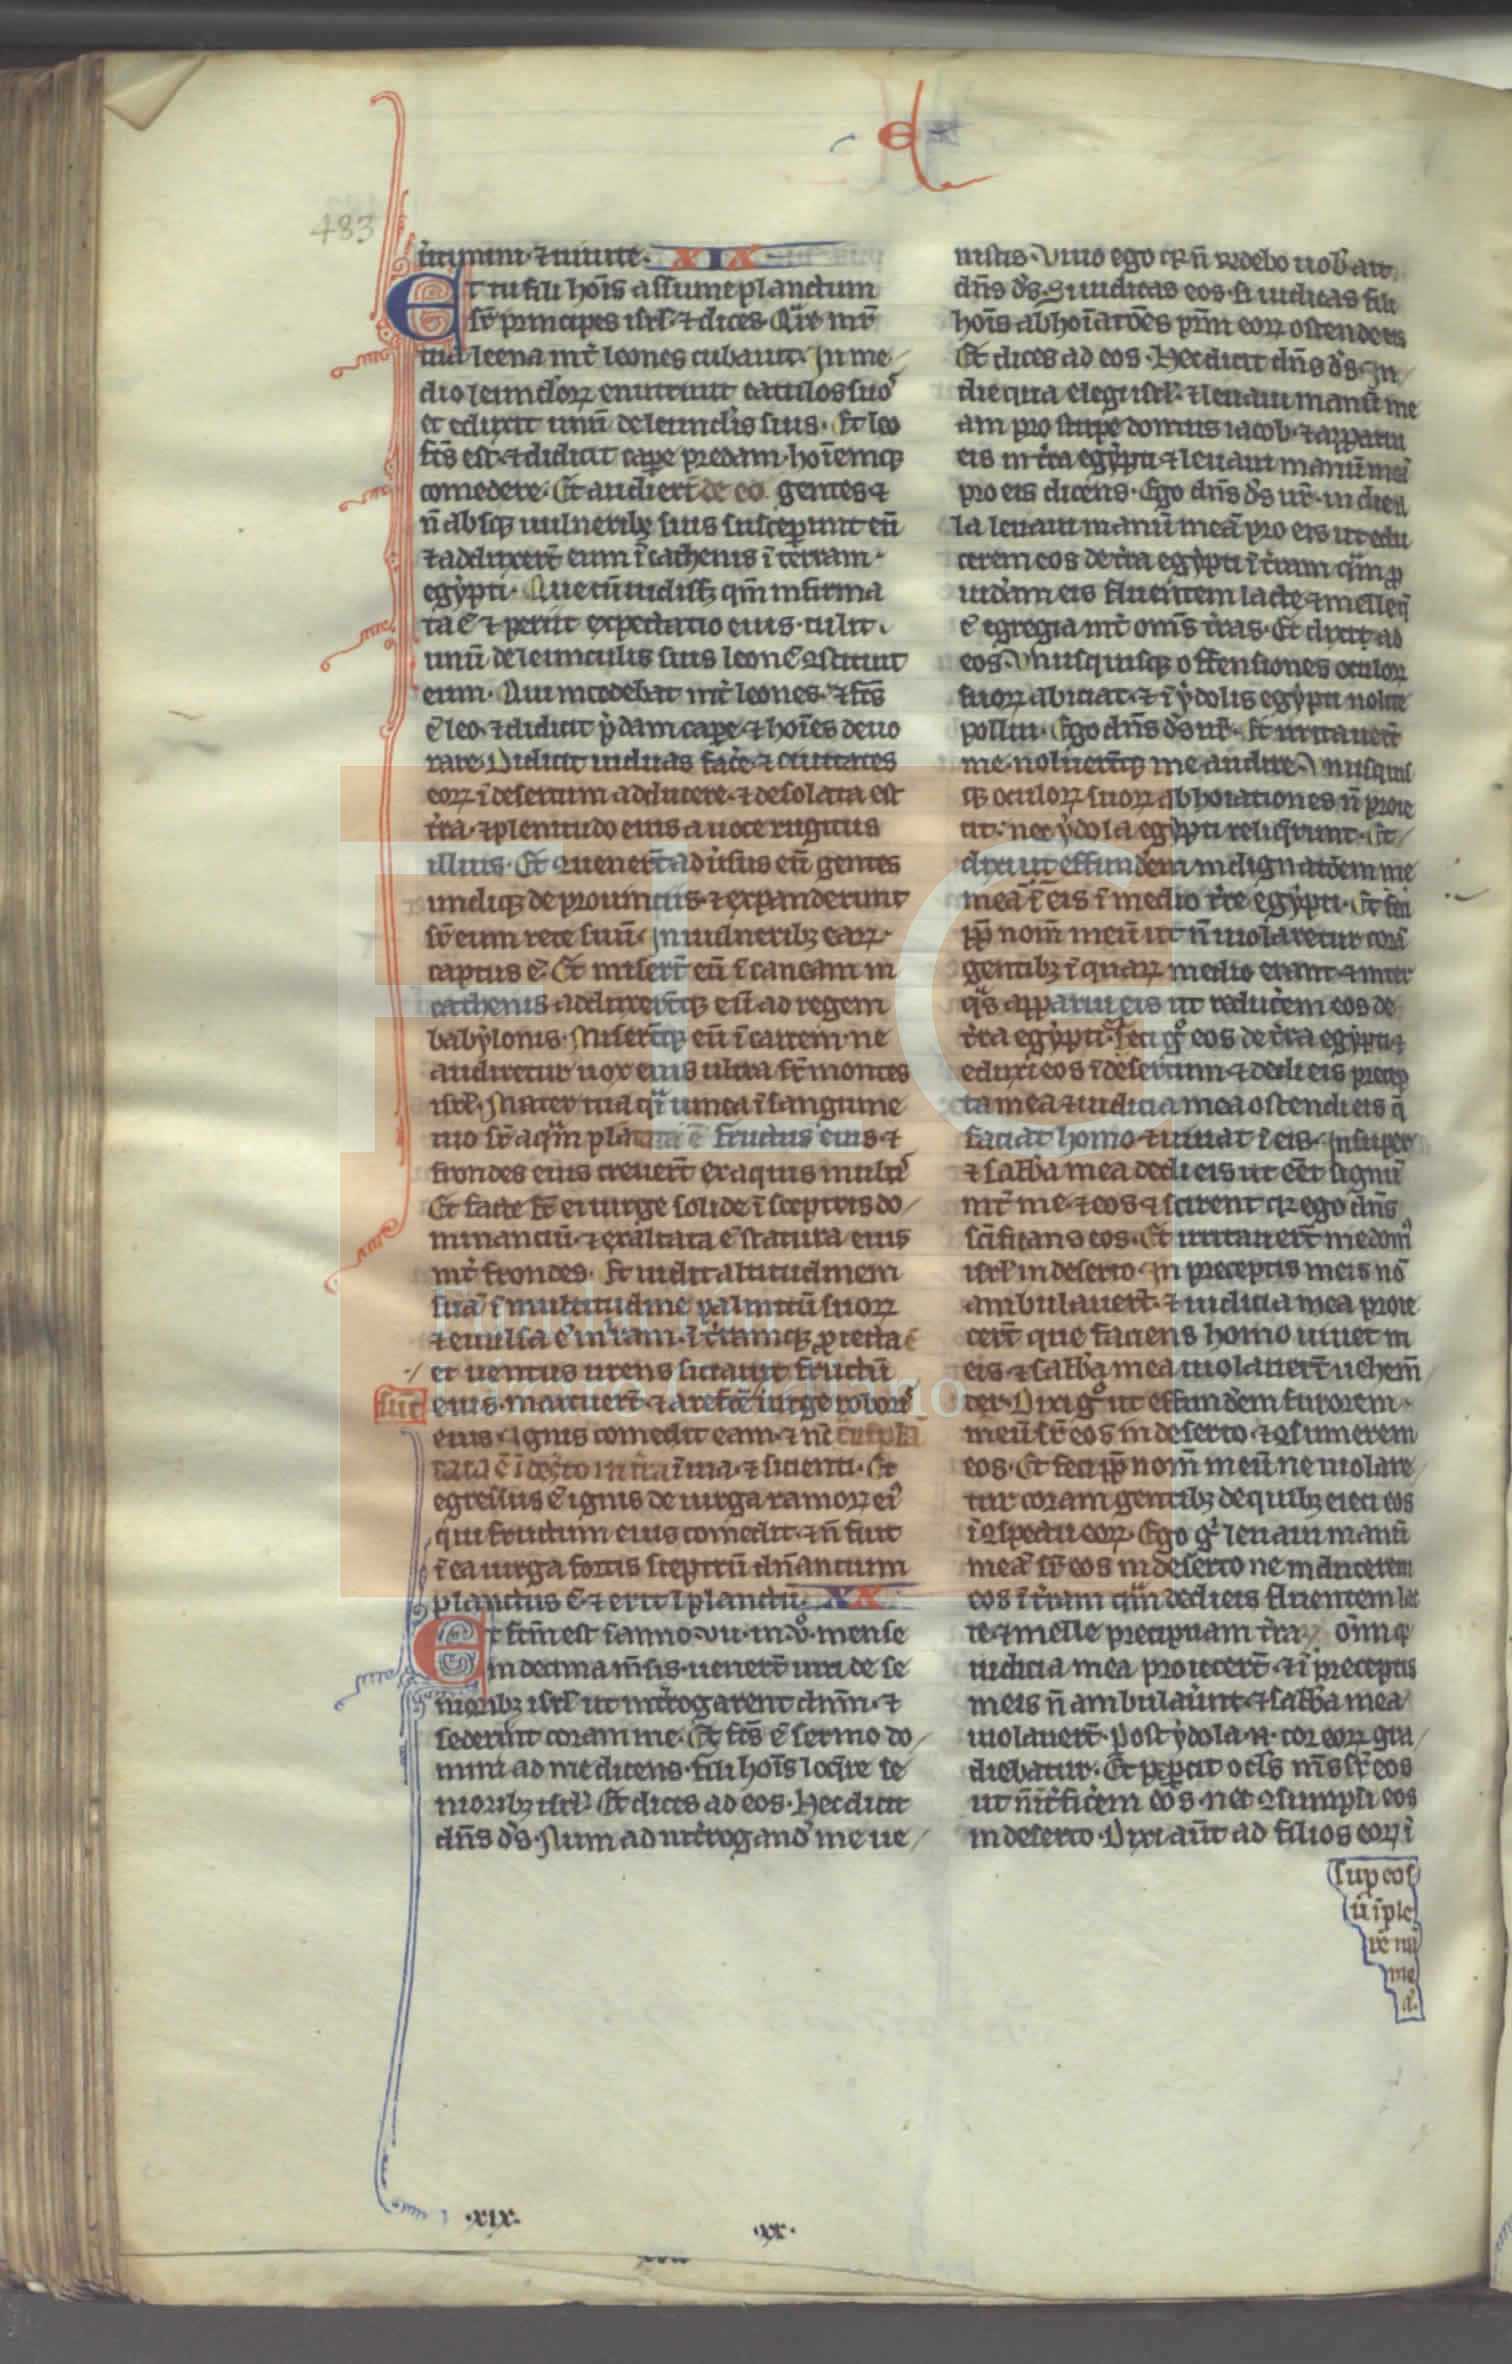 E
483
u̾timini ⁊ uiuite. XIX
Et tu fili hoı̄s assume planctum
sr̄ principes isrl̄. ⁊ dices. Qr̄e mr̄
tua leena int̄ leones cubauit. In me
dio leunculoꝝ enutriuit catulos suos
et eduxit unū de leunclis suis. Et leo
fc̄s est. ⁊ didicit cape predam. hoı̄emqꝫ
comedere. Et audierūt de eo gentes ⁊
n̄ absqꝫ uulneribꝫ suis suscepunt eū
⁊ adduxerūt eum ī cathenis ī terram
egypti. Que cū uidissꝫ qm̄ infirma
ta ē ⁊ periit expectatio eius. tulit
unū de leunculis suis leonē ꝯstituit
eum. Qui incedebat int̄ leones. ⁊ fc̄s
ē leo. ⁊ didicit p̄dam cape. ⁊ hoı̄es deuo
rare. Didicit uiduas facē. ⁊ ciuitates
eoꝝ ī desertum adducere. ⁊ desolata est
tr̄a. ⁊ plenitudo eius a uoce rugitus
illius. Et ꝯuenerūt aduīsus eū gentes
undiqꝫ de prouinciis. ⁊ expanderunt
sr̄ eum rete suū. In uulneribꝫ eaꝝ
captus ē. Et miserūt eū ī caueam in
cathenis adduxerūtqꝫ eū ad regem
babylonis. Miserūtqꝫ eū ī carcem ne
audiretur uox eius ultra sr̄ montes
isrl̄. Mater tua qͣi uinea ī sanguine
tuo sr̄ aqͣm plantata ē fructus eius ⁊
frondes eius creuerūt ex aquis multis
Et facte st̄ ei uirge solide ī sceptris do
minanciū. ⁊ exaltata ē statura eius
int̄ frondes. Et uidit altitudinem
suā ī multitudine palmitū suoꝝ
⁊ euulsa ē in iram. ī tr̄amqꝫ proiecta ē
et uentus urens siccauit fructū
eius. marcuerūt. ⁊ arefcē uirge roboris
eius. Ignis comedit eam. ⁊ nūc tnspla
tata ē ī deserto ī tr̄a īuia. ⁊ sicienti. Et
egressus ē ignis de uirga ramoꝝ ei
qui fructum eius comedit. ⁊ n̄ fuit
ī ea uirga fortis sceptrū dn̄antium
planctus ē. ⁊ erit ī planctū. XX
Et fc̄m est ī anno .vii. in .v. mense
in decima m̄sis. uenerūt uiri de se
nioribꝫ isrl̄ ut int̄rogarent dnm̄. ⁊
sederunt coram me. Et fc̄s ē sermo do
mini ad me dicens. fili hoı̄s loq̄re se
nioribꝫ isrl̄. Et dices ad eos. Hec dicit
dn̄s ds̄. Num ad int̄rogandū me ue
nistis. Viuo ego qꝛ n̄ r̄ndebo uob̄ ait
dn̄s ds̄. Si iudicas eos. si iudicas fili
hoı̄s abhoı̄atōes prm̄ eoꝝ ostende eis
Et dices ad eos. Hec dicit dn̄s ds̄. In
die qua elegi isrl̄. ⁊ leuaui manū me
am pro stirpe domus iacob. ⁊ apparui
eis in tr̄a egypti. ⁊ leuaui manū meā
pro eis dicens. Ego dn̄s ds̄ ur̄. in die il
la leuaui manū meā pro eis ut edu
cerem eos de tr̄a egypti ī tr̄am qͣm p
uidām eis fluentem lacte ⁊ melle q̄
ē egregia int̄ oms̄ tr̄as. Et dixit ad
eos. Vnusquisqꝫ offensiones oculoꝝ
suoꝝ abiciat. ⁊ ī ydolis egypti nolite
pollui. Ego dn̄s ds̄ ur̄. Et irritauerūt
me. noluerūtqꝫ me audire. Vnusquis
qꝫ oculoꝝ suoꝝ abhoiationes n̄ proie
cit. nec ydola egypti reliq̄runt. Et
dixi ut effunderem indignatōem me
meā ī eis ī medio tr̄e egypti. Et feci
pp̄ nom̄ meū ut n̄ uiolaretur corā
gentibꝫ ī quaꝝ medio erant. ⁊ inter
qͣs apparui eis ut educerem eos de
tr̄a egypti. Eieci gͦ eos de tr̄a egypti. ⁊
eduxi eos ī desertum. ⁊ dedi eis precep
ta mea ⁊ iudicia mea ostendi eis q̄
faciat homo. ⁊ uiuat ī eis. Insuper
⁊ sabb̄a mea dedi eis ut eēt signū
int̄ me. ⁊ eos. ⁊ scirent qꝛ ego dn̄s
sc̄ificans eos. Et irritauerūt me domus
isrl̄ in deserto. In preceptis meis nō
ambulauerūt. ⁊ iudicia mea proie
cerūt que faciens homo uiuet in
eis. ⁊ sabb̄a mea uiolauerūt uehem̄
ter. Dixi gͦ ut effunderem furorem
meū sr̄ eos in deserto. ⁊ ꝯsumerem
eos. Et feci pp̄ nom̄ meū ne uiolare
tur coram gentibꝫ de quibꝫ eieci eos
ī ꝯspectu eoꝝ. Ego gͦ leuaui manū
meā sr̄ eos in deserto ne inducerem
eos ī tr̄am qͣm dedi eis fluentem lac
te. ⁊ melle precipuam tr̄aꝝ oīm qꝛ
iudicia mea proiecerūt. ⁊ ī preceptis
meis n̄ ambulauūt. ⁊ sabb̄a mea
uiolauerūt. Post ydola n̄. cor eoꝝ gra
diebatur. Et pepcit ocls̄ ms̄ sr̄ eos
ut n̄ int̄ficem eos. nec ꝯsumpsi eos
in deserto. Dixi aut̄ ad filios eoꝝ ī
sup eos
ū īple
rē irā
me
ā
.xix.
.xx.
FLG
Fundación
Lázaro Galdiano